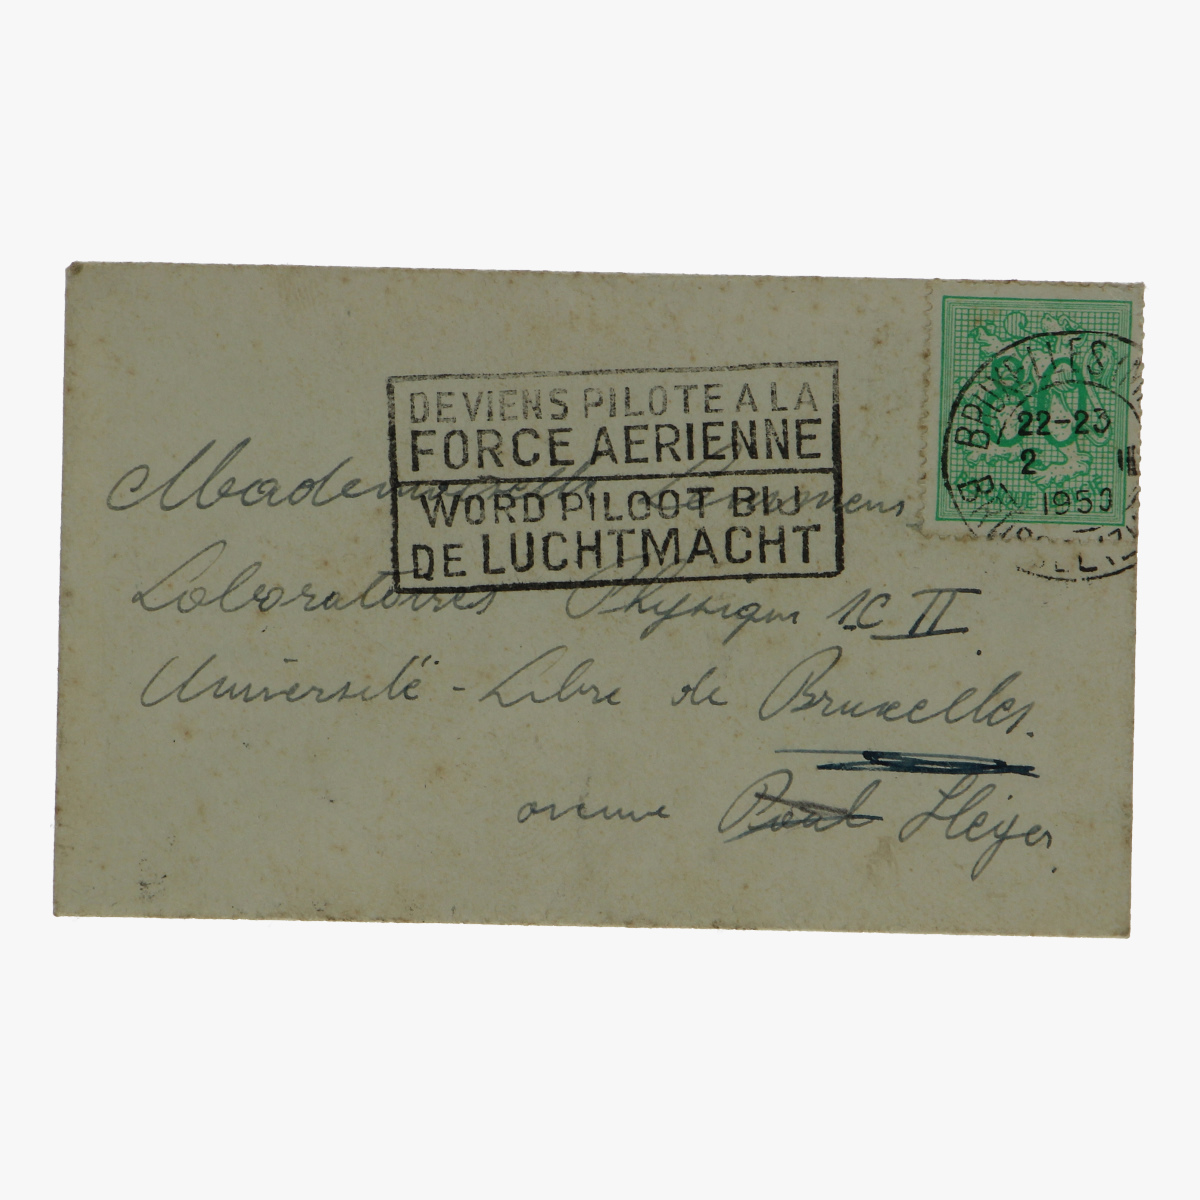 DEVIENS PILOTE A LA
FORCE AERIENNE
WORD PILOOT BIJ
DE LUCHTMACHT
BRUXELLES
22-23
2 III
1953
BRUSSEL
Mademoiselle
Laboratoires Physique 1C II
Université - Libre de Bruxelles.
avenue Paul Héger